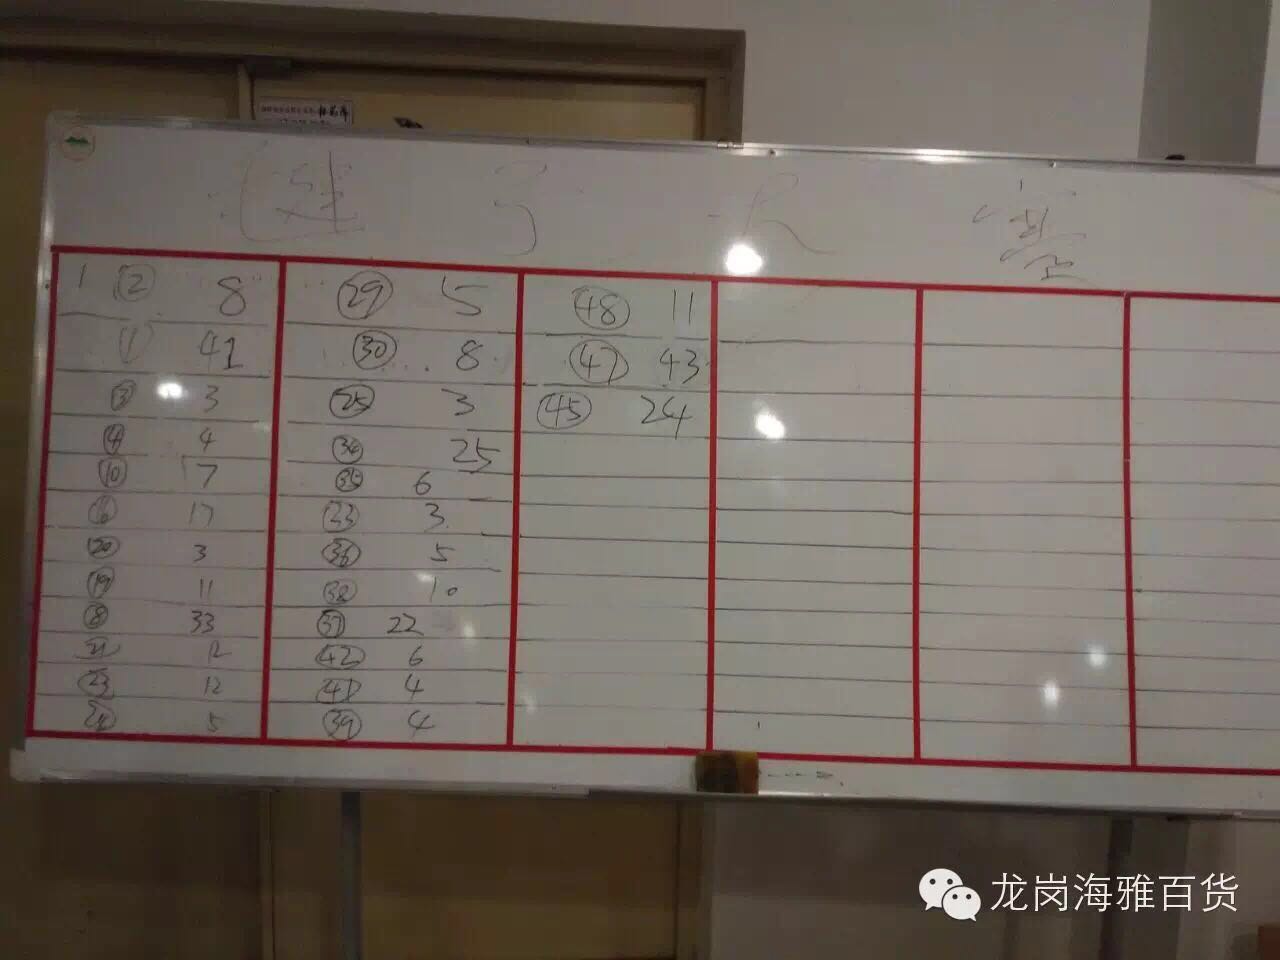 毽子大赛
1 ② 8
① 41
③ 3
④ 4
⑩ 17
⑯ 17
⑳ 3
⑲ 11
⑱ 33
㉑ 12
㉓ 12
5
㉙ 5
㉚ 8
㉕ 3
㉞ 25
㉟ 6
㉝ 3
㊱ 5
㊳ 10
㊲ 22
㊷ 6
㊶ 4
㊴ 4
㊽ 11
㊼ 43
㊺ 24
龙岗海雅百货